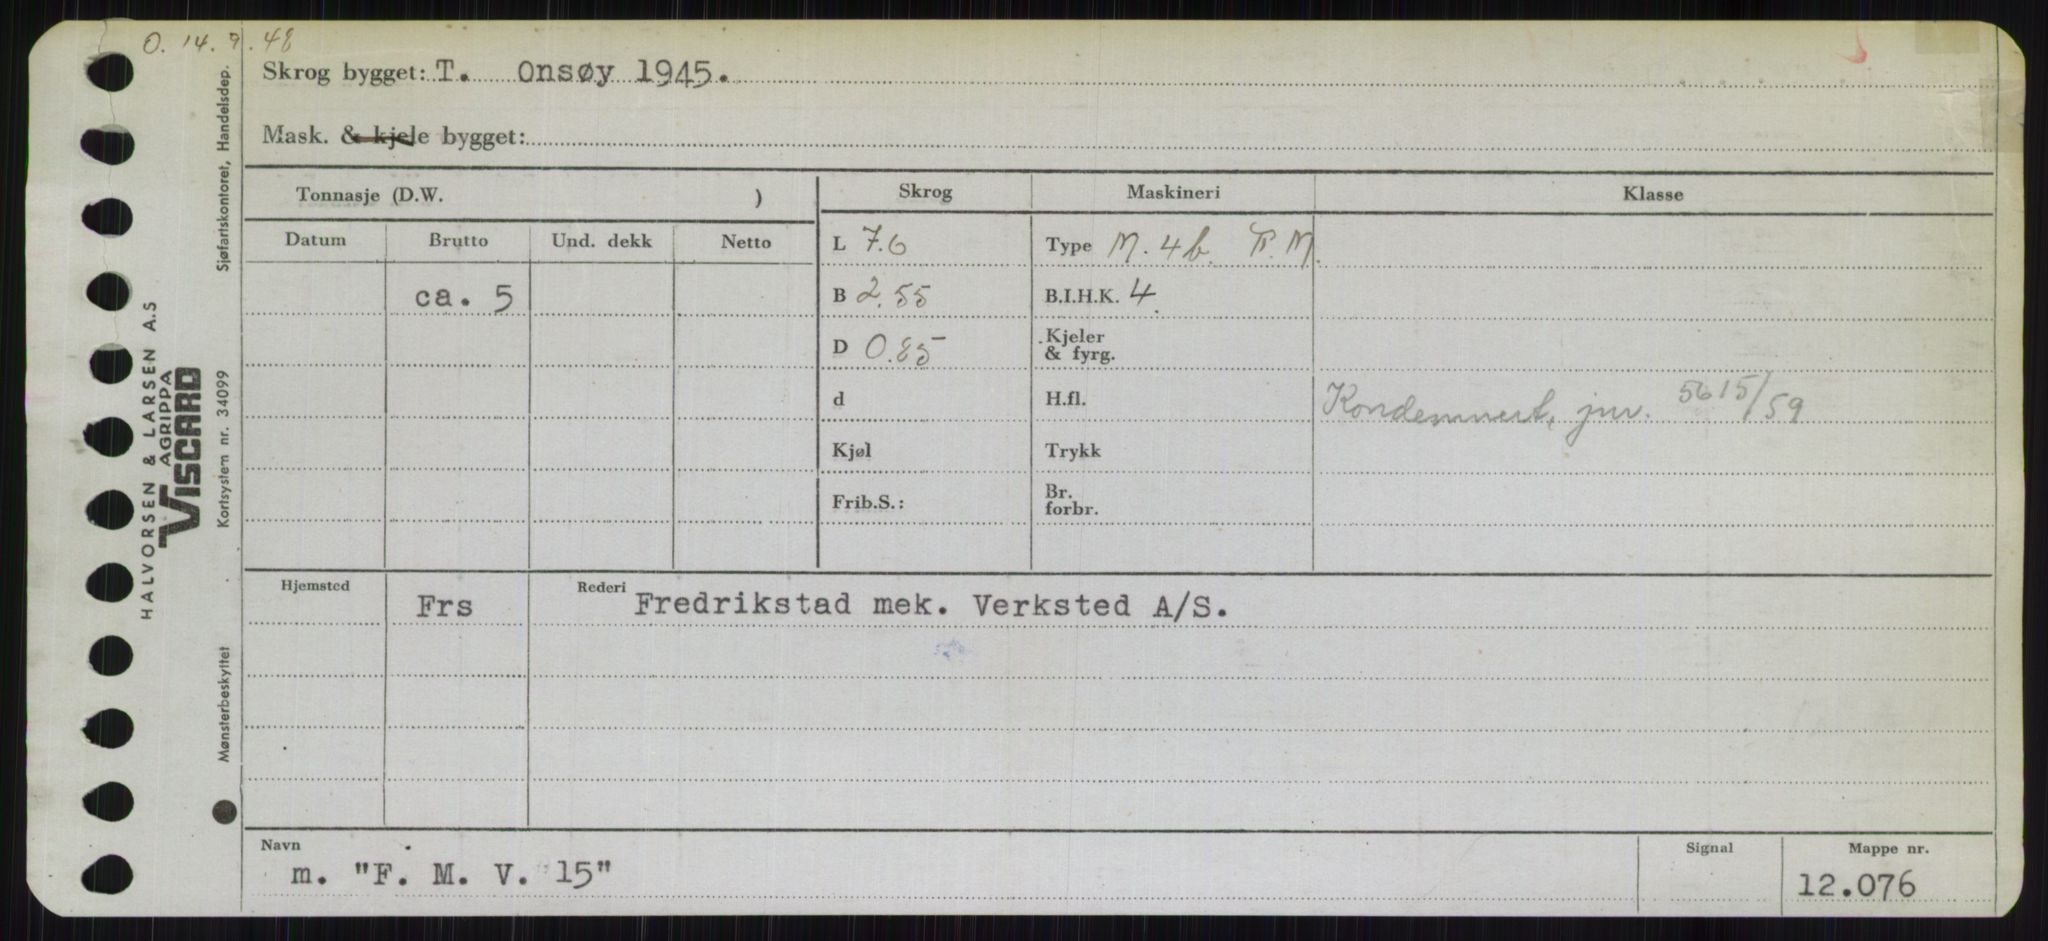 O. 14.9.48
Skrog bygget: T. Onsøy 1945.
Mask. & kjele bygget:
Tonnasje (D.W. )
Skrog
Maskineri
Klasse
Datum Brutto Und. dekk Netto
L 7.6
Type M. 4b. P.M.
ca. 5
B 2.55
B.I.H.K. 4
D 0.85
Kjeler
& fyrg.
d
H.fl.
Kondemnert, jnr. 5615/59
Kjøl
Trykk
Frib.S.:
Br.
forbr.
Hjemsted
Frs
Rederi
Fredrikstad mek. Verksted A/S.
Navn
m. "F. M. V. 15"
Signal
Mappe nr.
12.076
HALVORSEN & LARSEN A.S
AGRIPPA
VISCARD
Sjøfartskontoret, Handelsdep.
Kortsystem nr. 34099
Mønsterbeskyttet